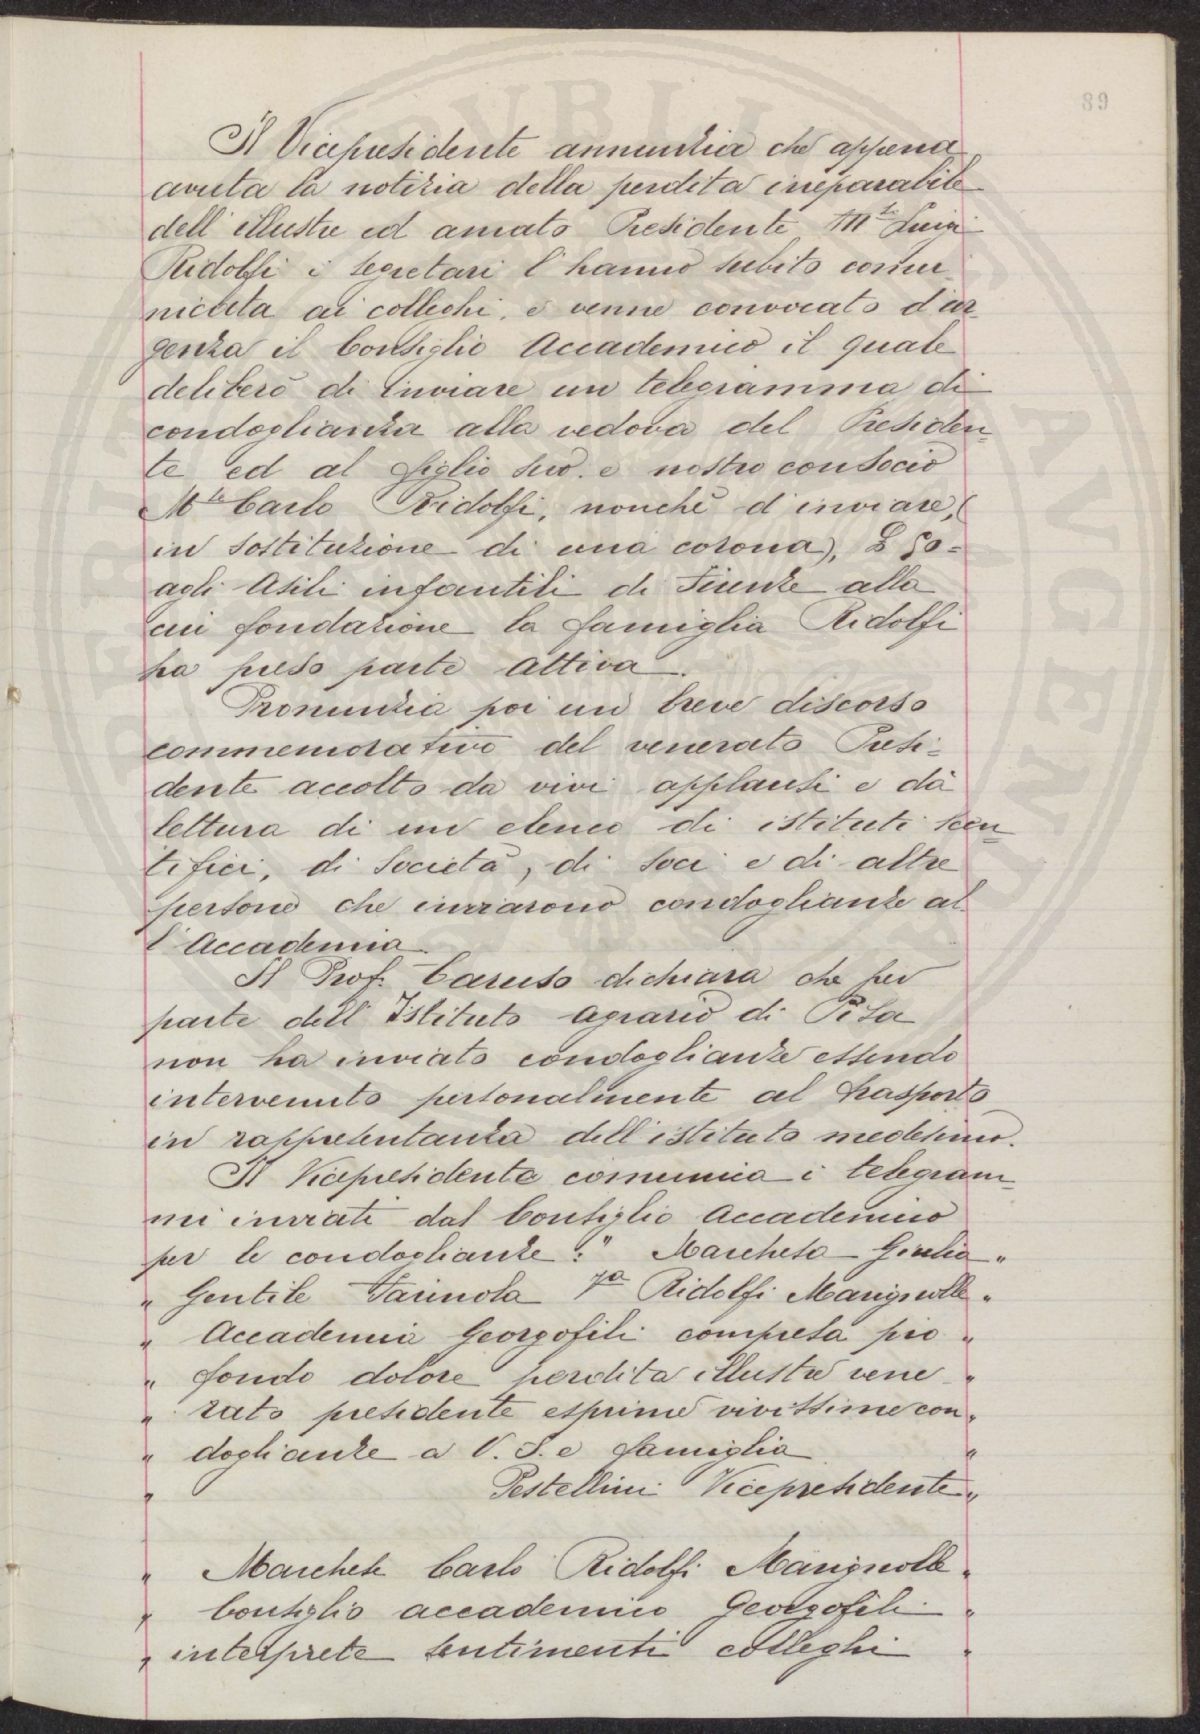 89
Il Vicepresidente annunzia che appena
avuta la notizia della perdita irreparabile
dell'illustre ed amato Presidente M.se Luigi
Ridolfi i segretari l'hanno subito comu-
nicata ai colleghi, e venne convocato d'ur-
genza il Consiglio Accademico il quale
deliberò di inviare un telegramma di
condoglianza alla vedova del Presiden-
te ed al figlio suo e nostro consocio
M.se Carlo Ridolfi, nonchè d'inviare, (
in sostituzione di una corona), L 50=
agli Asili infantili di Firenze alla
cui fondazione la famiglia Ridolfi
ha preso parte attiva.
Pronunzia poi un breve discorso
commemorativo del venerato Presi-
dente accolto da vivi applausi e dà
lettura di un elenco di istituti scen
tifici, di Società, di soci e di altre
persone che inviarono condoglianze al-
l'Accademia.
Il Prof. Caruso dichiara che per
parte dell'Istituto agrario di Pisa
non ha inviato condoglianze essendo
intervenuto personalmente al trasporto
in rappresentanza dell'istituto medesimo.
Il Vicepresidente comunica i telegram-
mi inviati dal Consiglio Accademico
per le condoglianze: " Marchesa Giulia "
" Gentile Farinola Va Ridolfi Marignolle "
" Accademia Georgofili compresa pro "
" fondo dolore perdita illustre vene "
" rato presidente esprime vivissime con "
" doglianze a V. S. e famiglia "
" Pestellini Vicepresidente "
" Marchese Carlo Ridolfi Marignolle "
" Consiglio accademico Georgofili "
" interprete sentimenti colleghi "